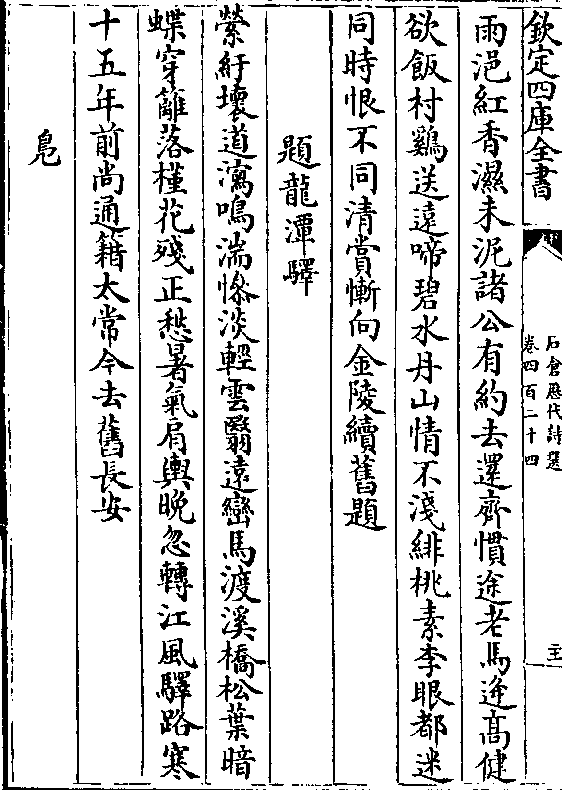 欽定四庫全書
石倉歷代詩選
卷四百二十四
雨浥紅香濕未泥諸公有約去還齊慣途老馬迎高健
欲飯村鷄送遠啼碧水丹山情不淺緋桃素李眼都迷
同時恨不同清賞慚向金陵續舊題
題龍潭驛
縈紆壞道瀉鳴湍慘淡輕雲翳遠巒馬渡溪橋松葉暗
蝶穿籬落槿花殘正愁暑氣肩輿晚忽轉江風驛路寒
十五年前尚通籍太常今去舊長安
鳬